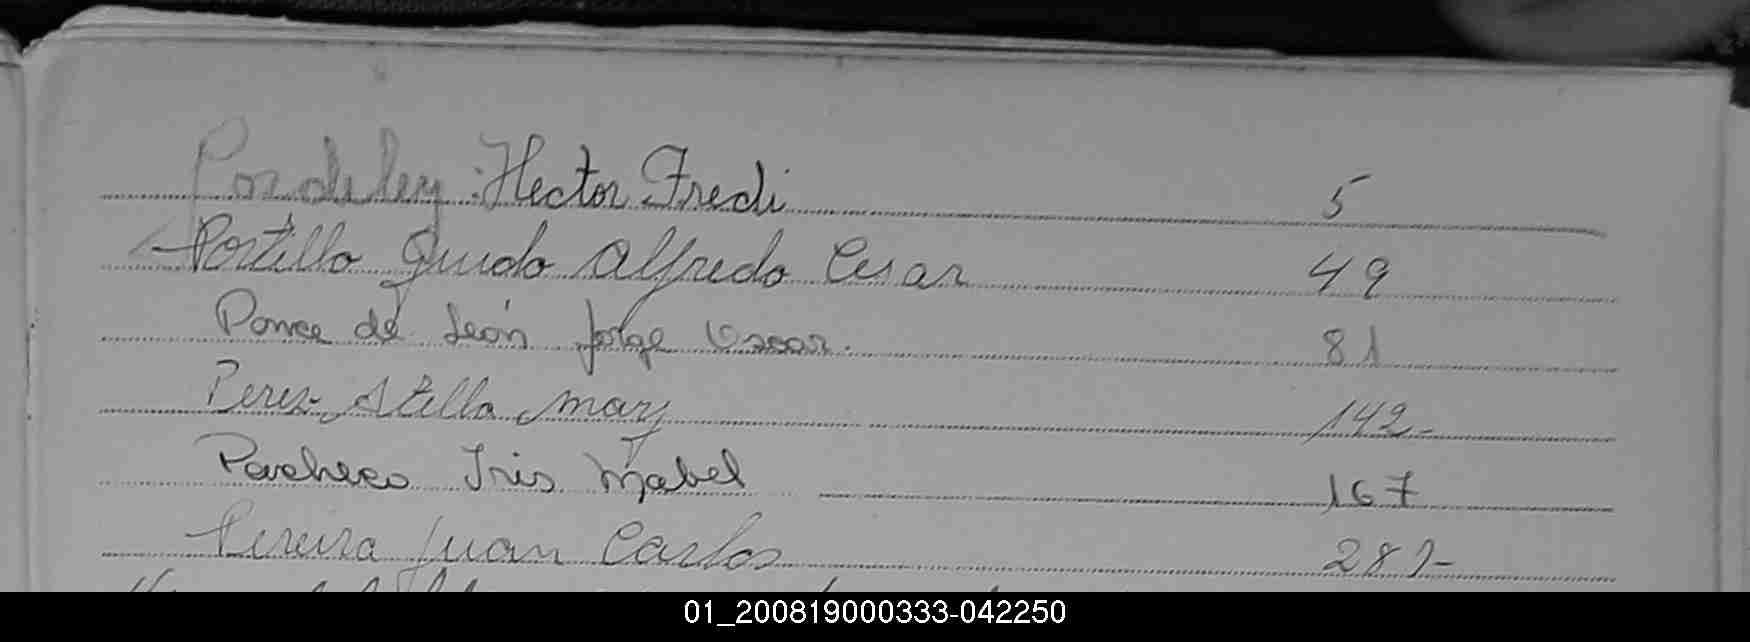 Pordeley: Hector Fredi 5
Portillo Guido Alfredo Cesar 49
Ponce de León Jorge Oscar. 81
Perez Stella Mary 142-
Pacheco Iris Mabel 167
Pereira Juan Carlos 281-
01_200819000333-042250